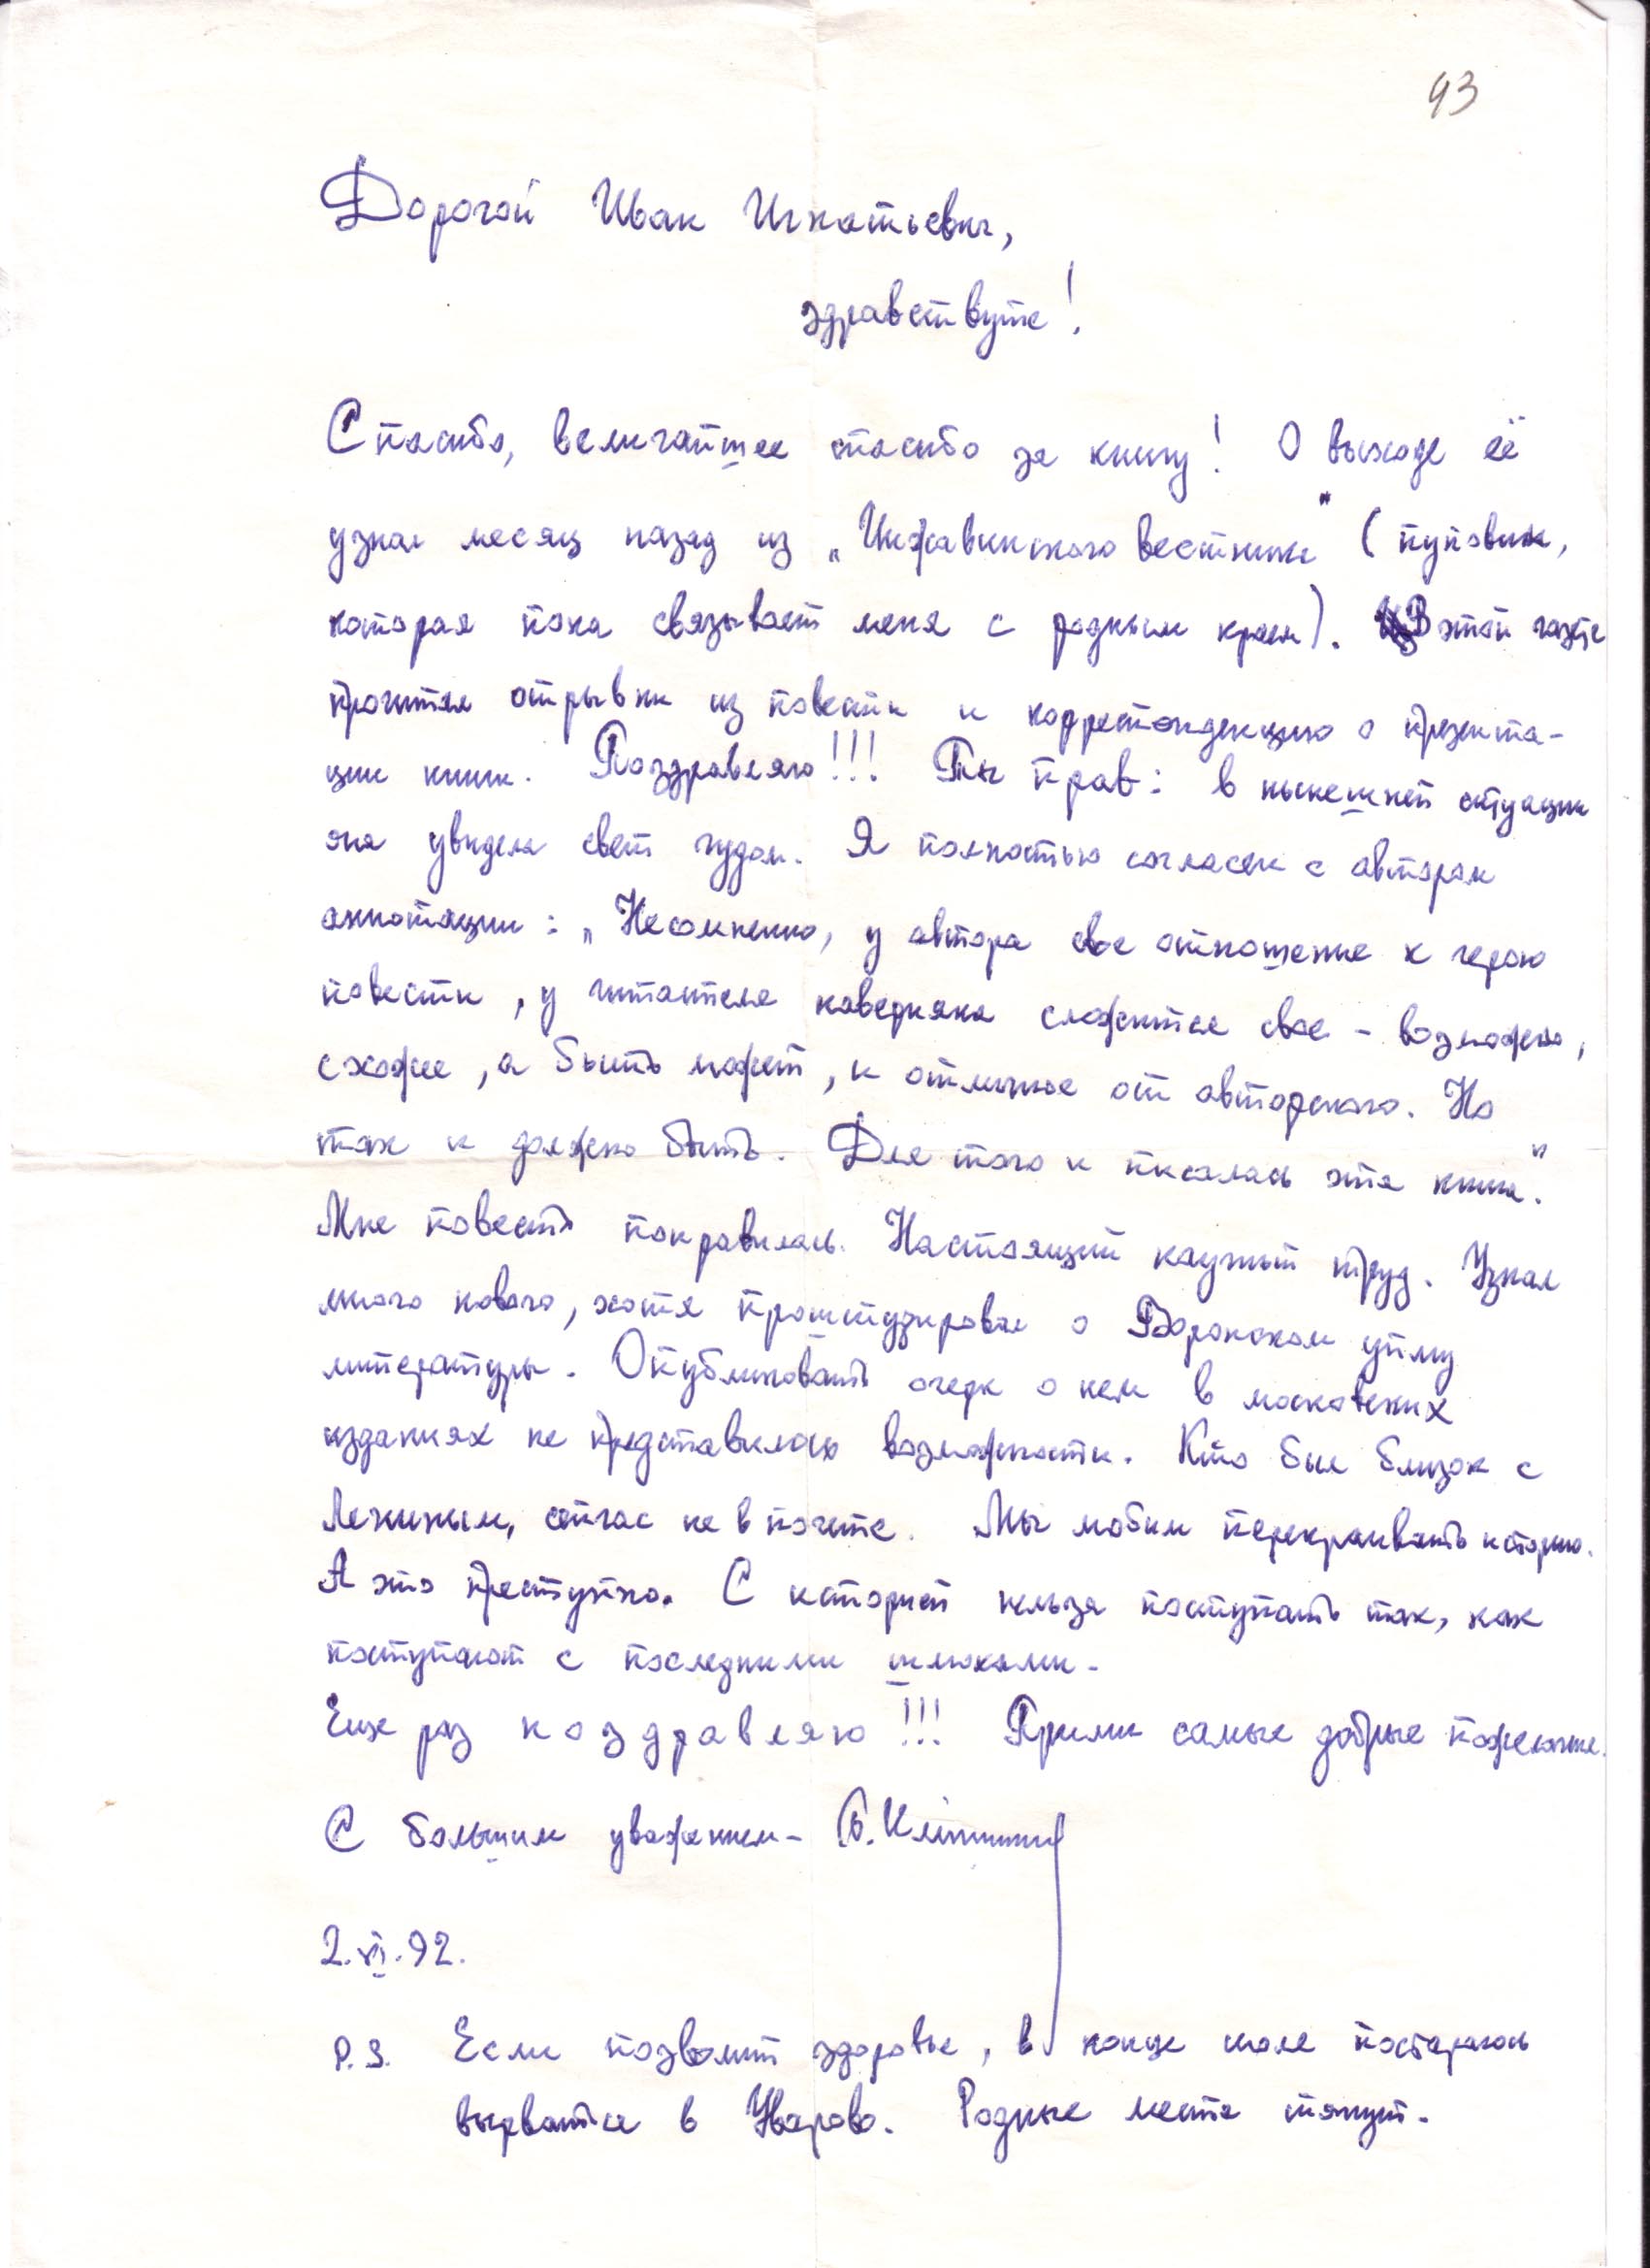 93
Дорогой Иван Игнатьевич,
здравствуйте!
Спасибо, величайшее спасибо за книгу! О выходе её
узнал месяц назад из „Инжавинского вестника" (пуповина,
которая пока связывает меня с родным краем). В этой газете
прочитал отрывки из повести и корреспонденцию о презента-
ции книги. Поздравляю!!! Ты прав: в нынешней ситуации
она увидела свет чудом. Я полностью согласен с автором
аннотации: „Несомненно, у автора свое отношение к герою
повести, у читателя наверняка сложится свое - возможно,
схожее, а быть может, и отличное от авторского. Но
так и должно быть. Для того и писалась эта книга."
Мне повесть понравилась. Настоящий научный труд. Узнал
много нового, хотя проштудировал о Воронском уйму
литературы. Опубликовать очерк о нем в московских
изданиях не представилось возможности. Кто был близок с
Лениным, сейчас не в почете. Мы любим перекраивать историю.
А это преступно. С историей нельзя поступать так, как
поступают с последними шлюхами.
Еще раз поздравляю!!! Прими самые добрые пожелания.
С большим уважением-
2.VI.92.
P.S. Если позволит здоровье, в конце июля постараюсь
вырваться в Уварово. Родные места тянут.